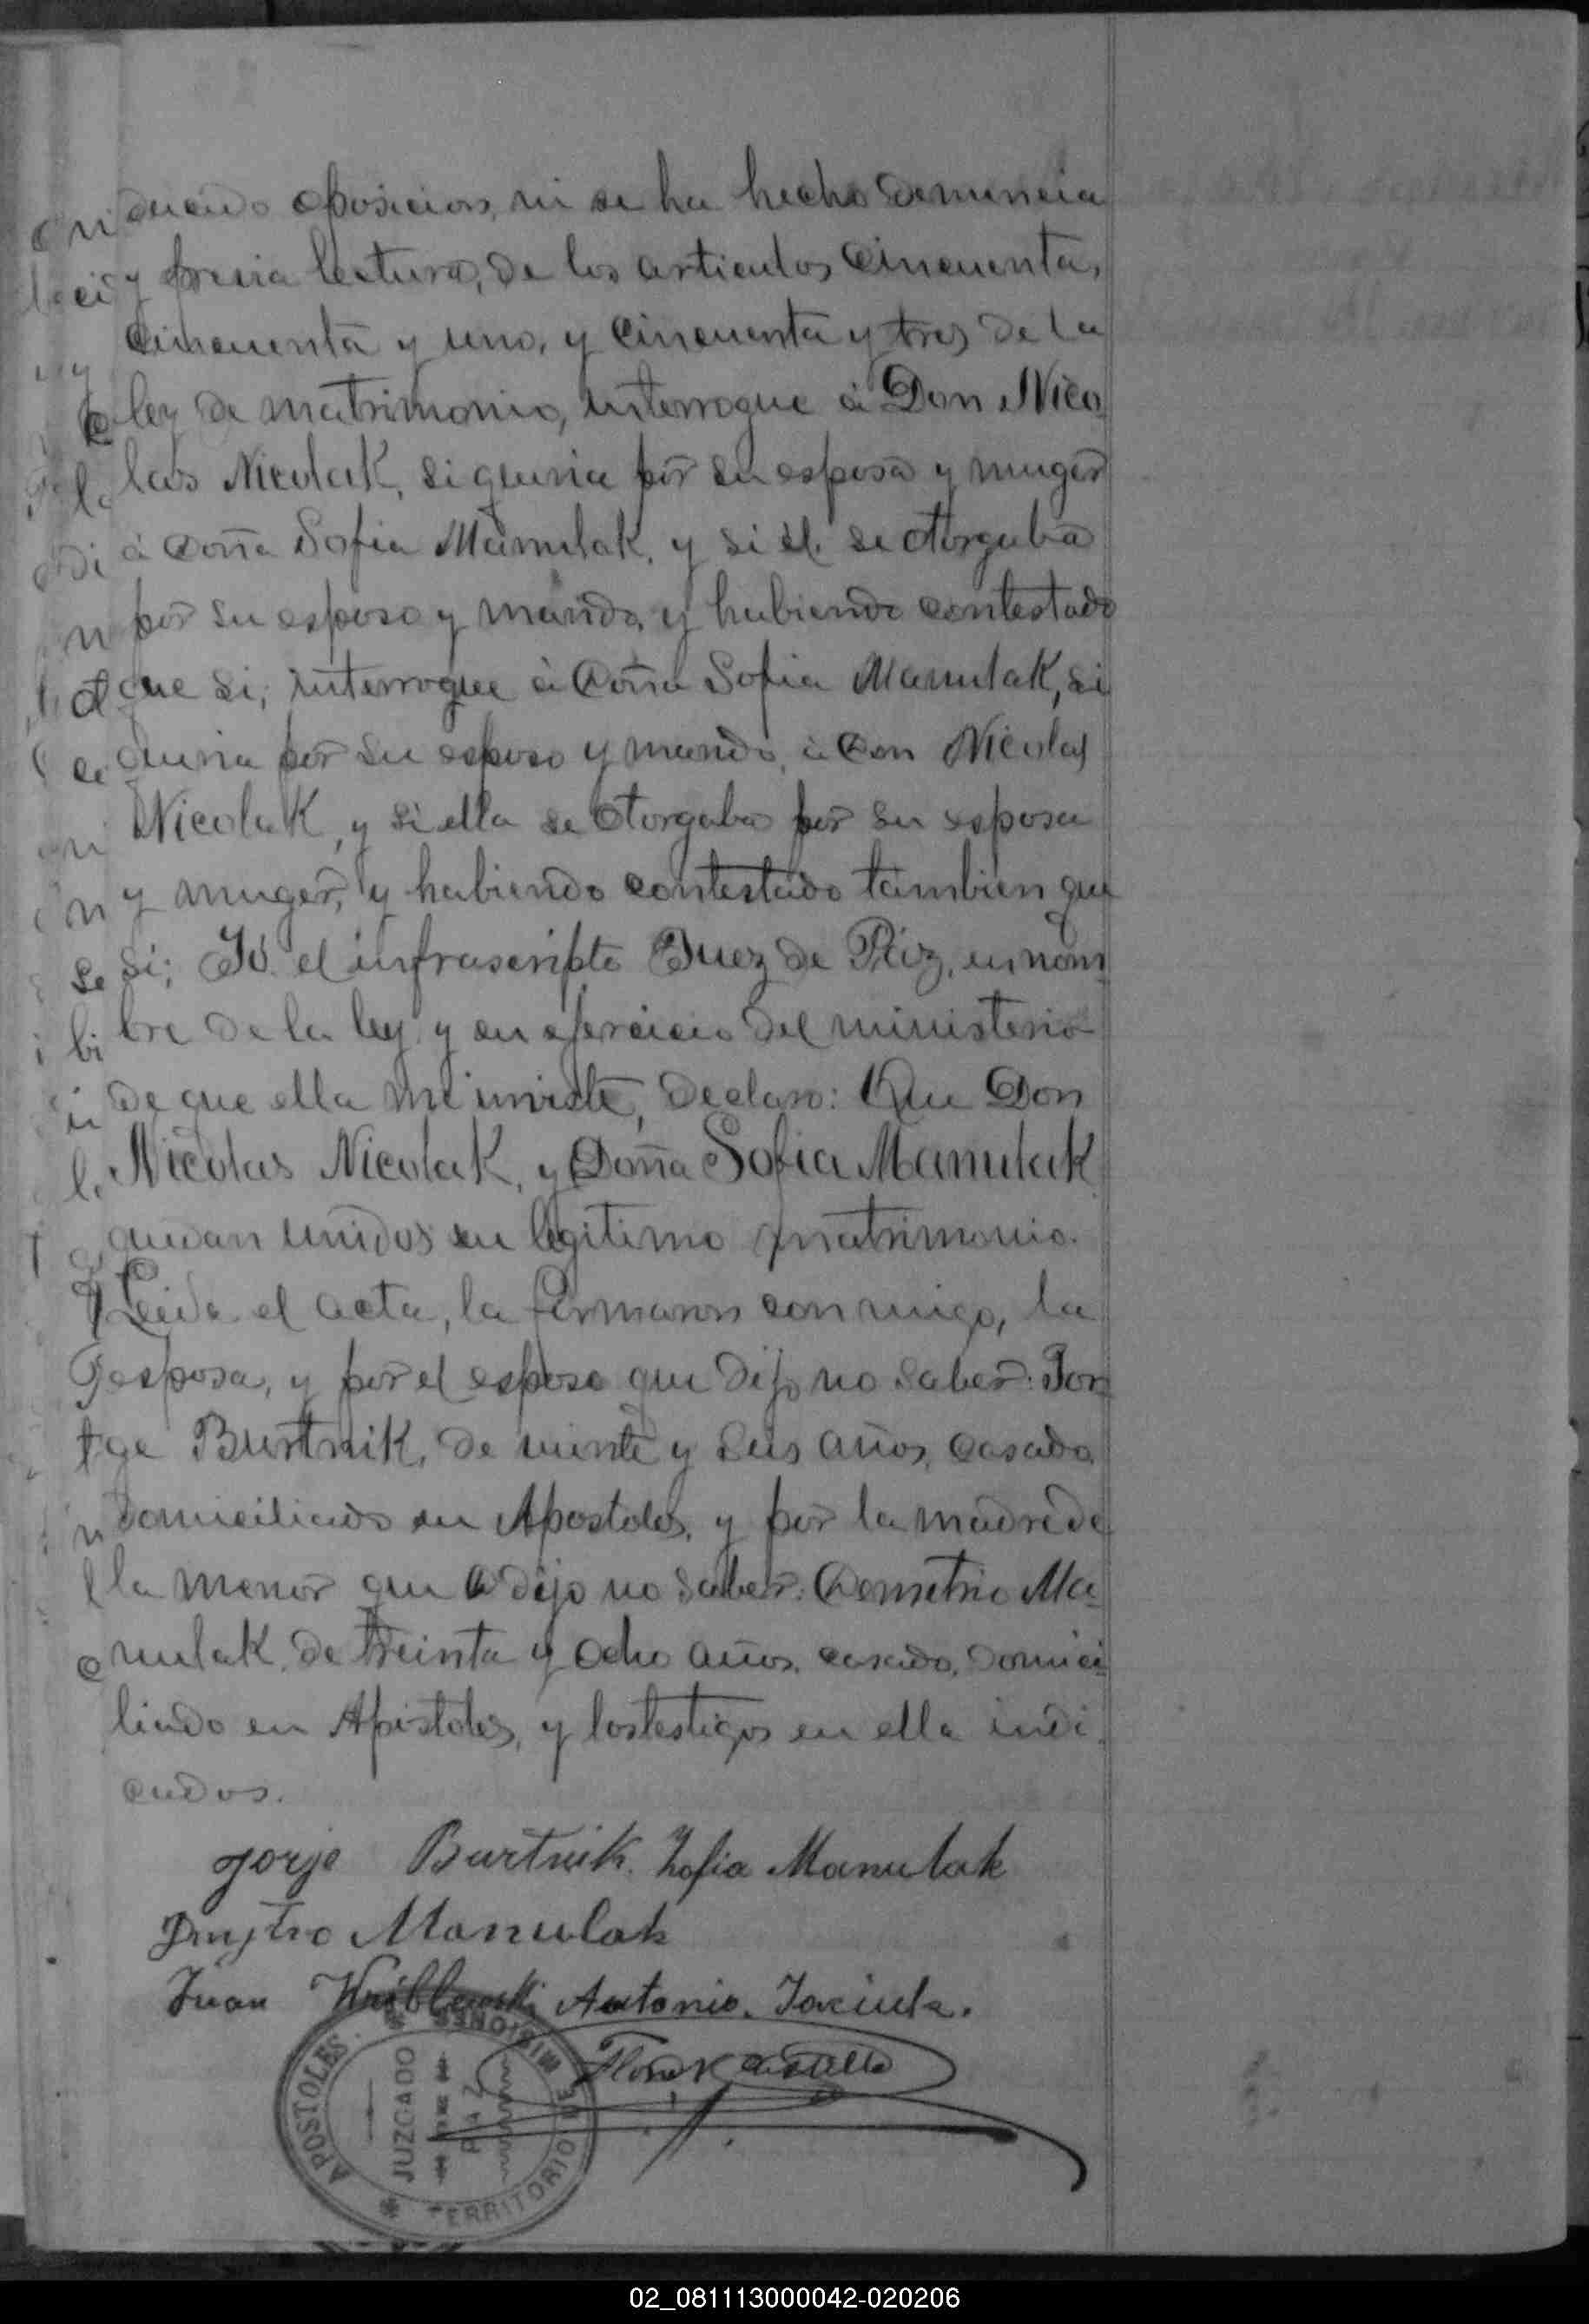 ducido oposicion, ni se ha hecho denuncia
y previa lectura, de los articulos cincuenta,
cincuenta y uno, y cincuenta y tres de la
ley de matrimonio, interrogue à Don Nico
las Nicolak, si queria por su esposa y muger
à Doña Sofia Manulak, y si él se otorgaba
por su esposo y marido, y habiendo contestado
que si; interrogue à Doña Sofia Manulak, si
queria por su esposo y marido, à Don Nicolas
Nicolak, y si ella se otorgaba por su esposa
y muger, y habiendo contestado tambien que
si; Yo el infrascripto Juez de Paz, en nom
bre de la ley y en ejercicio del ministerio
de que ella me inviste, declaro: Que Don
Nicolas Nicolak, y Doña Sofia Manulak
quedan unidos en legitimo matrimonio.
Leida el acta, la firmaron conmigo, la
esposa, y por el esposo que dijo no saber: Jor
ge Burtnik, de veinte y seis años, casado,
domiciliado en Apostoles, y por la madre de
la menor que dijo no saber: Demetrio Ma
nulak, de treinta y ocho años, casado, domici
liado en Apostoles, y los testigos en ella indi
cados.
Jorje Burtnik. Zofia Manulak
Dmytro Manulak
Juan Antonio.
APOSTOLES
JUZGADO
DE
PAZ
TERRITORIO DE MISIONES
02_081113000042-020206